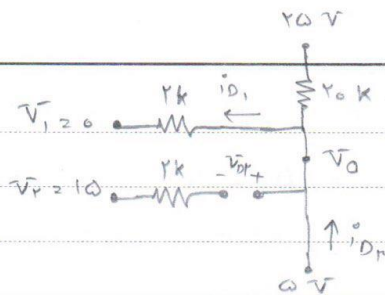 ۲۵ V
۲k  iD۱  ۲۰ k
V۱ = ۰
V۰
۲k  - VD۲ +
V۲ = ۱۵
iD۳
۵ V